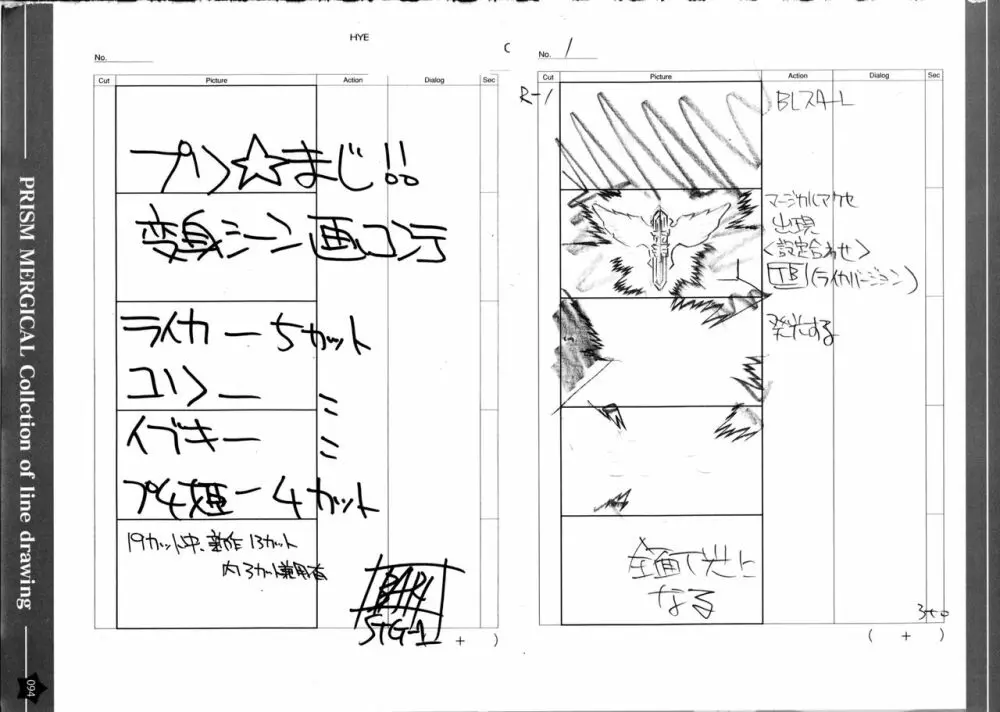 PRISM MERGICAL Collction of line drawing
094
HYE
No.
Cut Picture Action Dialog Sec
プリ☆まじ!!
変身シーン画コンテ
ライカ ー 5カット
コリン ー 〃
イブキ ー 〃
プ4姫 ー 4カット
19カット中、新作13カット
内3カット兼用有
STG-1
( + )
C
No. 1
Cut Picture Action Dialog Sec
R-1
BLスタート
マージカルマクセ
出現
<設定合わせ>
TB(ライカバージョン)
発光する
全面て光と
なる
3+0
( + )